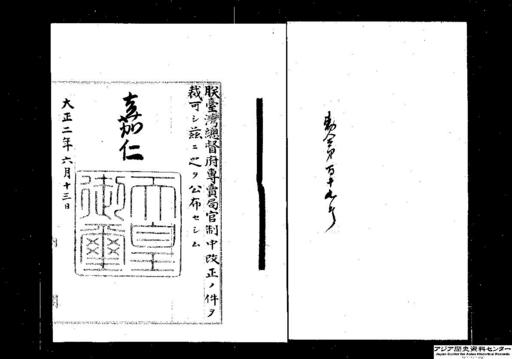 朕臺灣總督府專賣局官制中改正ノ件ヲ
裁可シ茲ニ之ヲ公布セシム
嘉仁
天皇
御璽
大正二年六月十三日
内閣
アジア歴史資料センター
Japan Center for Asian Historical Records